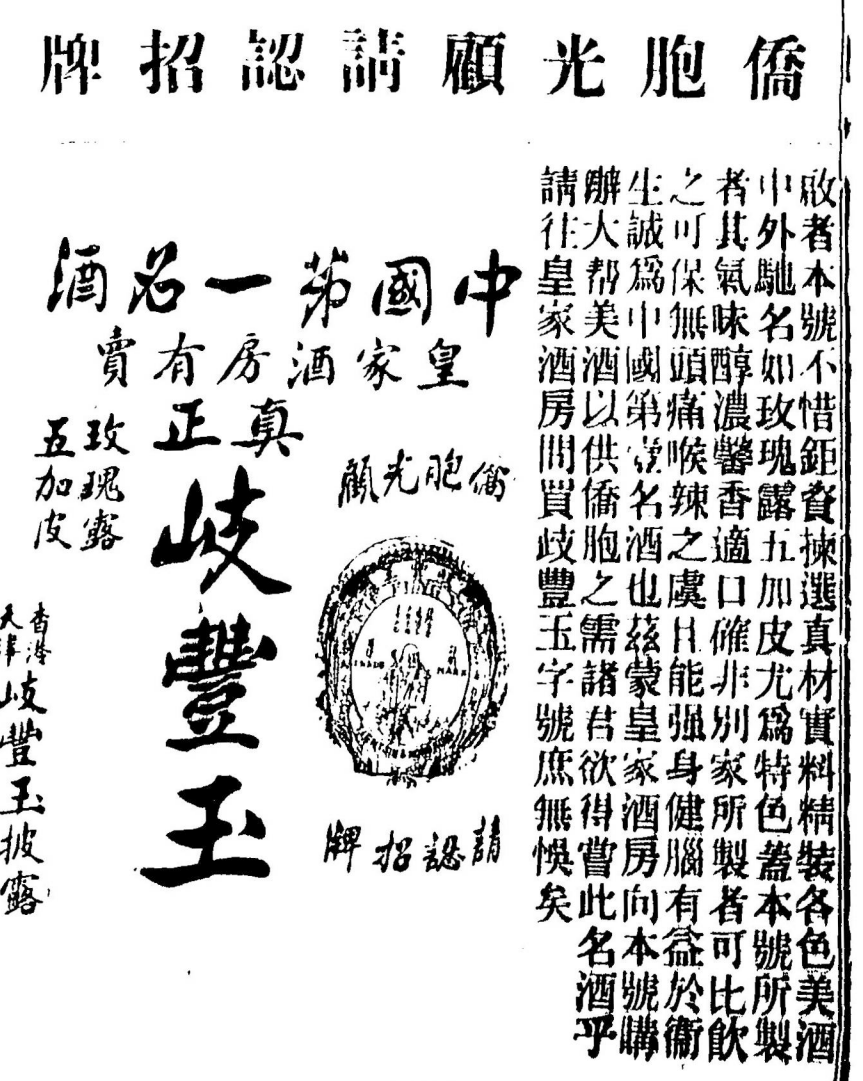 僑胞光顧請認招牌
啟者本號不惜鉅資揀選真材實料精裝各色美酒
中外馳名如玫瑰露五加皮尤爲特色蓋本號所製
者其氣味醇濃馨香適口確非別家所製者可比飲
之可保無頭痛喉辣之虞且能强身健腦有益於衛
生誠爲中國第壹名酒也茲蒙皇家酒房向本號購
辦大帮美酒以供僑胞之需諸君欲得嘗此名酒乎
請往皇家酒房問買歧豐玉字號庶無悞矣
中國第一名酒
皇家酒房有賣
僑胞光顧
TRADE MARK
請認招牌
真正
岐豐玉
玫瑰露
五加皮
香港
天津
岐豐玉披露